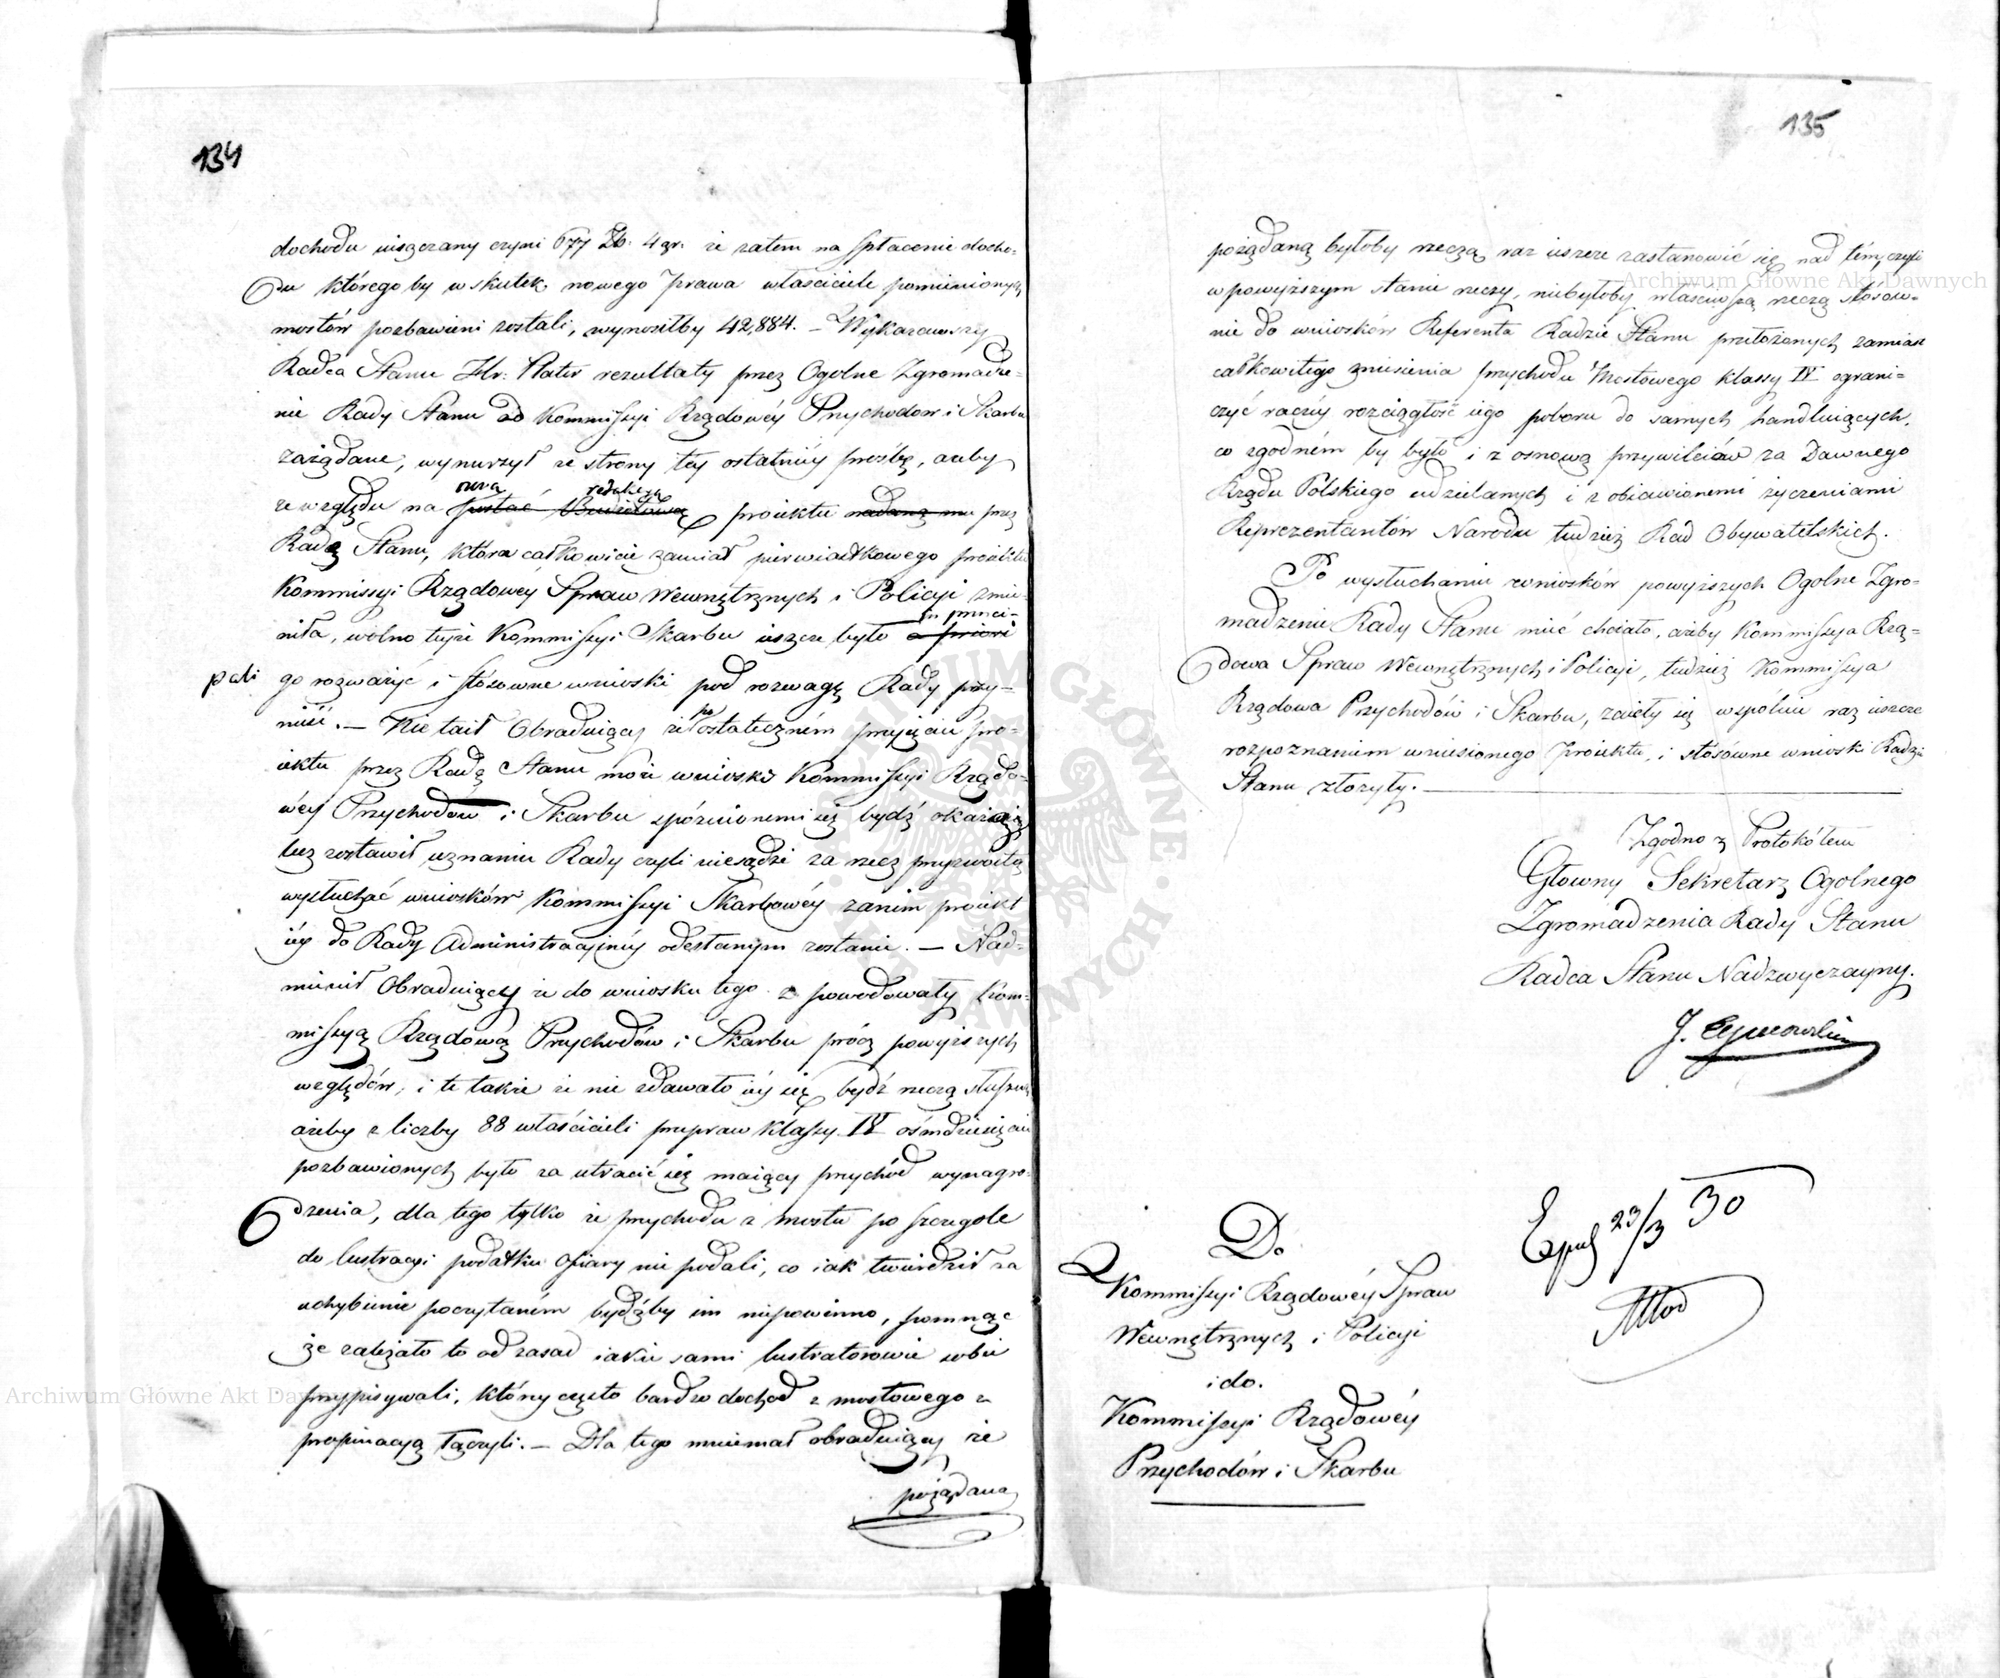 134
dochodu uiszczany czyni 677 Zł. 4 gr. że zatem na spłacenie docho-
du któregoby w skutek nowego prawa właściciele pomienionych
mostów pozbawieni zostali, wynosiłby 42,884. – Wykazawszy
Radca Stanu Hr: Plater rezultaty przez Ogolne Zgromadze-
nie Rady Stanu od Kommissyi Rządowéy Przychodow i Skarbu
zażądane, wynurzył ze strony tey ostatniéy prośbę, ażeby
nową redakcyą
ze względu na postać proiektu nadaną mu przez
Radę Stanu, która całkowicie zamiar pierwiastkowego proiektu
Kommissyi Rządowey Spraw Wewnętrznych i Policyi zmie-
in princi-
niła, wolno teyże Kommissyi Skarbu ieszcze było a priori
pali go rozważyć i stósowne wnioski pod rozwagę Rady przy-
nieść. – Nie taił Obraduiący iż po ostateczném przyięciu pro-
iektu przez Radę Stanu może wnioski Kommissyi Rządo-
wéy Przychodów i Skarbu spóźnionemi się bydź okażą
lecz zostawił uznaniu Rady czyli niesądzi za rzecz przyzwoitą
wysłuchać wniosków Kommissyi Skarbowéy zanim proiekt
iéy do Rady Administracyinéy odesłanym zostanie. – Nad-
mienił Obraduiący że do wniosku tego spowodowały Kom-
missyą Rządową Przychodów i Skarbu prócz powyższych
względów, i te także że nie zdawało iéy się bydź rzeczą słuszną
ażeby z liczby 88 właścicieli przepraw klassy IV ośmdziesięciu
pozbawionych było za utracić się maiący przychód wynagro-
dzenia, dla tego tylko że przychodu z mostu po szczególe
do lustracyi podatku Ofiary nie podali, co iak twierdził za
uchybienie poczytaném bydźby im niepowinno, pomnąc
że zależało to od zasad iakie sami lustratorowie sobie
przypisywali, którzy często bardzo dochod z mostowego z
propinacyą łączyli. – Dla tego mniemał obraduiący że
pożądaną
135
pożądaną byłoby rzeczą raz ieszcze zastanowić się nad tém, czyli
w powyższym stanie rzeczy, niebyłoby właściwszą rzeczą stósow-
nie do wniosków Referenta Radzie Stanu przełożonych zamiast
całkowitego zniesienia przychodu Mostowego klassy IV ograni-
czyć raczéy rozciągłość iego poboru do samych handluiących,
co zgodném by było i z osnową przywileiów za Dawnego
Rządu Polskiego udzielanych i z obiawionemi życzeniami
Reprezentantów Narodu tudzież Rad Obywatelskich.
Po wysłuchaniu wniosków powyższych Ogolne Zgro-
madzenie Rady Stanu mieć chciało, ażeby Kommissya Rzą-
dowa Spraw Wewnętrznych i Policyi, tudzież Kommissya
Rządowa Przychodów i Skarbu, zaięły się wspólnie raz ieszcze
rozpoznaniem wniesionego Proiektu, i stósówne wnioski Radzie
Stanu złożyły.
Zgodno z Protokółem
Głowny Sekretarz Ogolnego
Zgromadzenia Rady Stanu
Radca Stanu Nadzwyczayny.
Do
Kommissyi Rządowéy Spraw
Wewnętrznych i Policyi
i do.
Kommissyi Rządowéy
Przychodów i Skarbu
23/3 30
Archiwum Główne Akt Dawnych
Archiwum Główne Akt Dawnych
ARCHIWUM GŁÓWNE AKT DAWNYCH